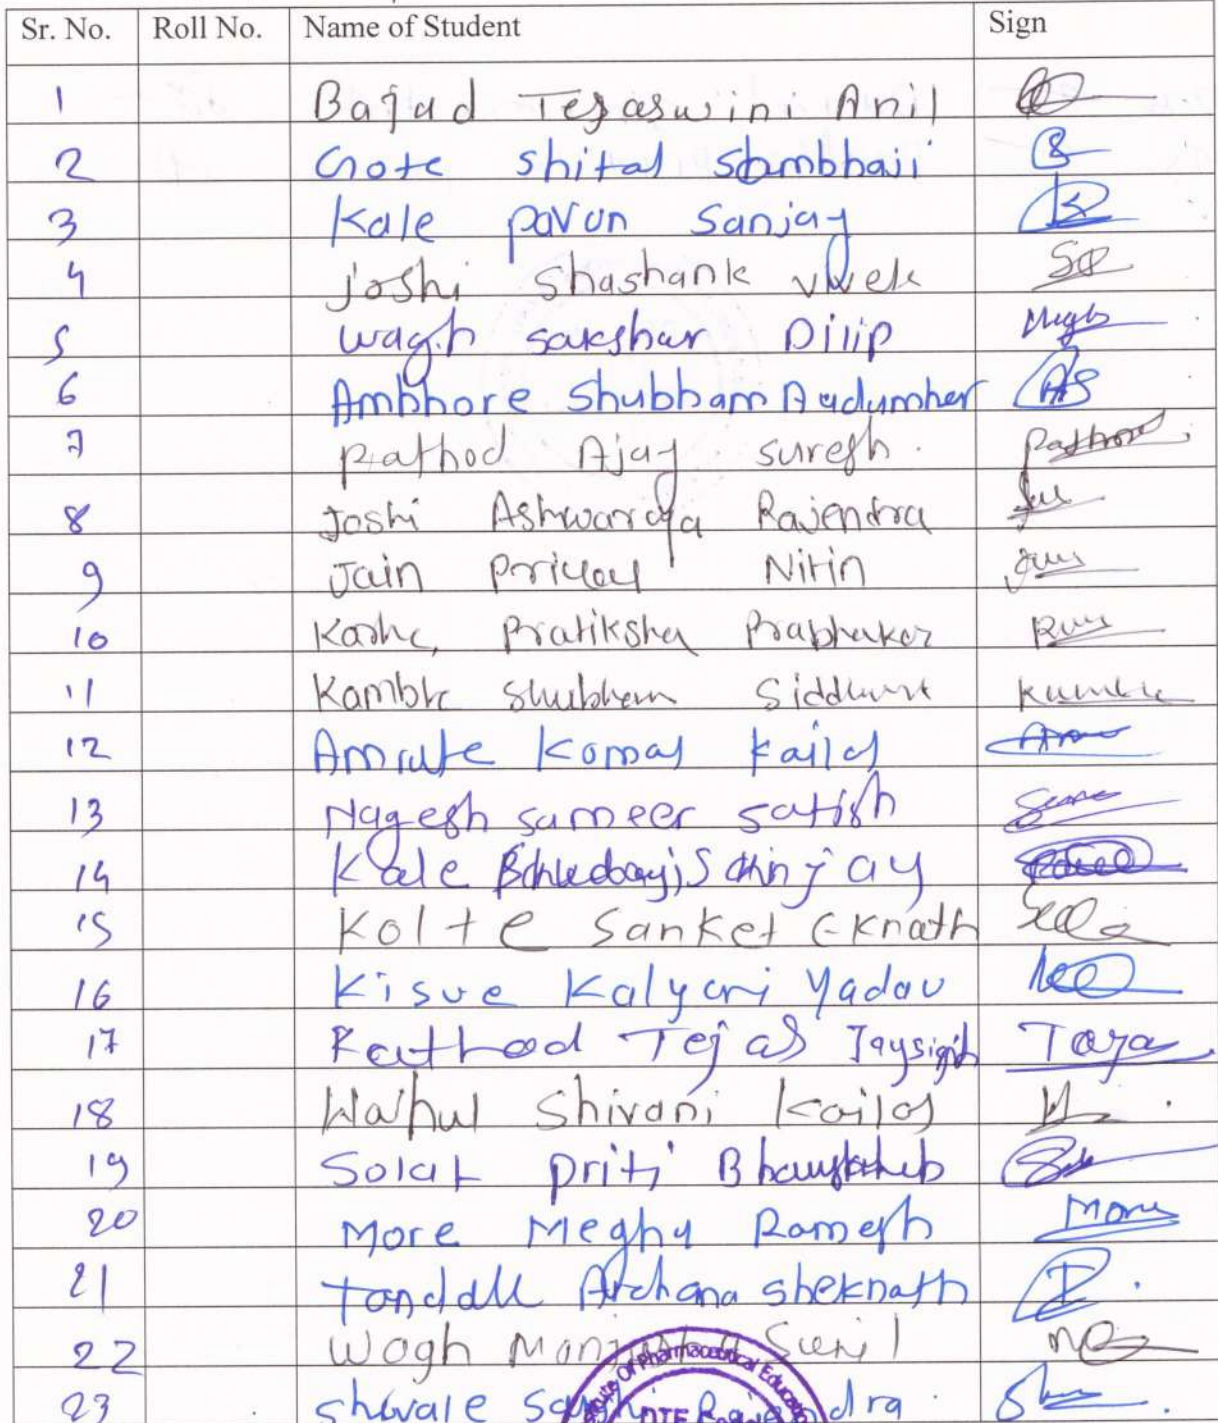 Sr. No. Roll No. Name of Student Sign
1 Bajad Tejaswini Anil
2 Gote shital Sambhaji
3 Kale pavan Sanjay
4 Joshi Shashank vivek
5 wagh sakshar Dilip
6 Ambhore Shubham Audumber AS
7 Rathod Ajay suresh Rathod
8 Joshi Ashwarya Rajendra
9 Jain Priyay Nitin
10 Pratiksha Prabhakar
11 Kamble Shubham Siddhant Kamble
12 Amrute Komal Kailas
13 Nagesh sameer satish
14 Kale
15 Kolte Sanket Eknath
16 Kisve Kalyani Yadav
17 Rathod Tejas Jaysigh Teja
18 Wahul Shivani Kailas
19 Solat priti Bhausaheb
20 More Megha Ramesh More
21 Archana sheknath
22 Wagh Sunil
23 shivale
Of Pharmaceutical
DTE